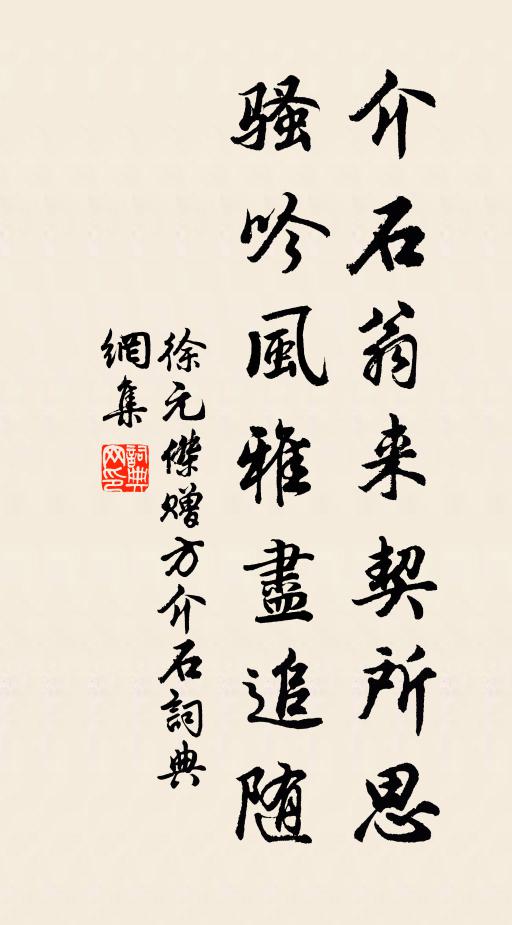 介石翁来契所思
骚吟風雅盡追随
徐元傑赠方介石詞典
網集
詞典
网印